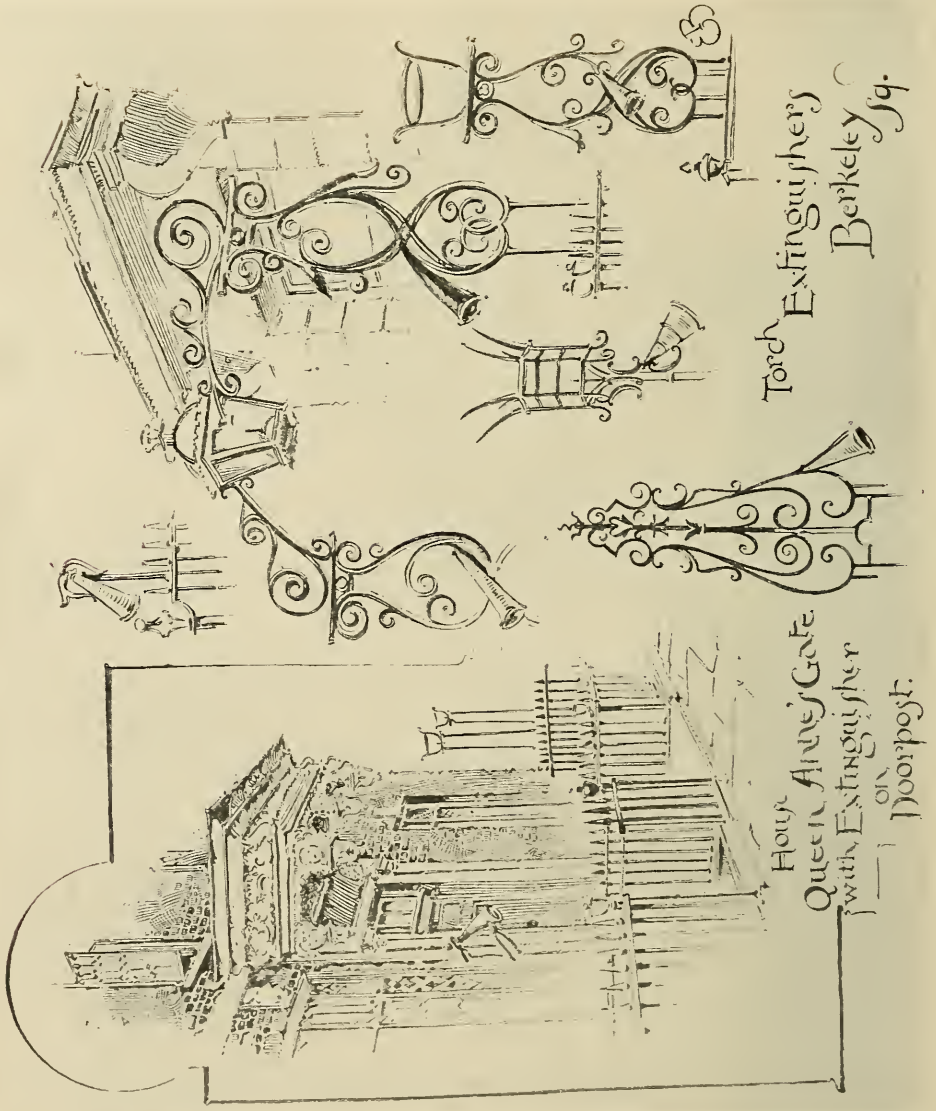 House
Queen Anne's Gate
with Extinguisher
on
Doorpost.
Torch Extinguishers
Berkeley
Sq.